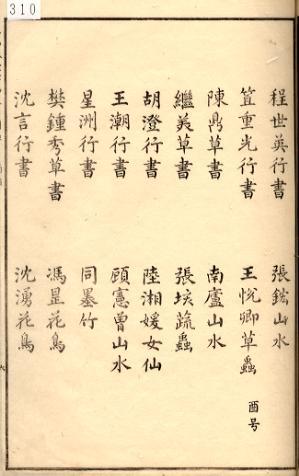 310
程世英行書
笪重光行書
陳鼎草書
繼美草書
胡澄行書
王潮行書
星洲行書
樊鍾秀草書
沈言行書
張鎡山水
王悅卿草蟲
酉号
南廬山水
張垓蔬蟲
陸湘媛女仙
顧憲曾山水
同墨竹
馮昰花鳥
沈湧花鳥